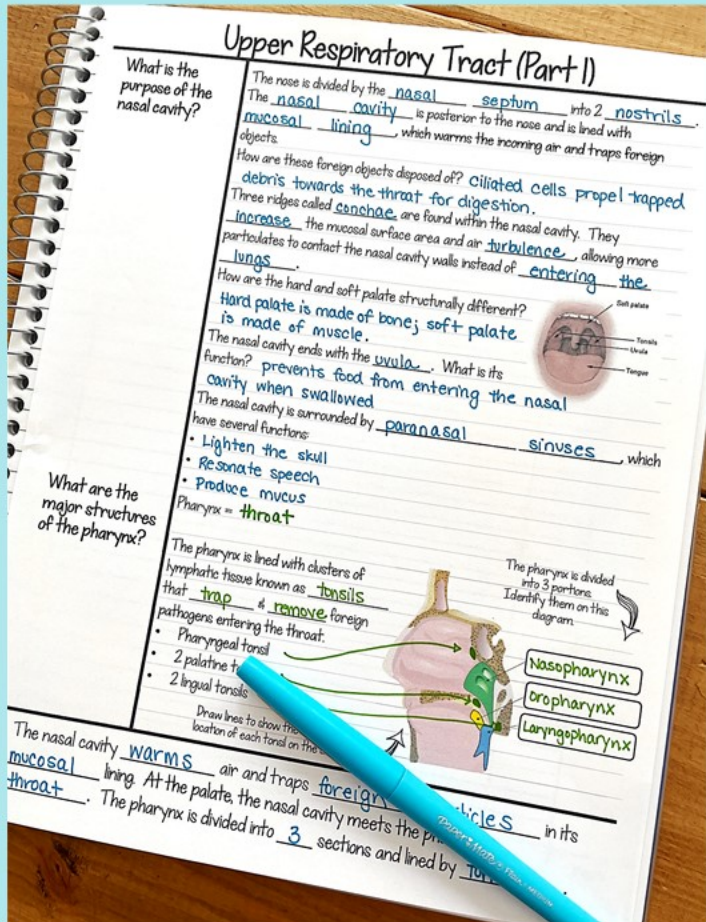 Upper Respiratory Tract (Part 1)
What is the
purpose of the
nasal cavity?
The nose is divided by the nasal septum into 2 nostrils.
The nasal cavity is posterior to the nose and is lined with
mucosal lining, which warms the incoming air and traps foreign
objects.
How are these foreign objects disposed of? Ciliated cells propel trapped
debris towards the throat for digestion.
Three ridges called conchae are found within the nasal cavity. They
increase the mucosal surface area and air turbulence, allowing more
particulates to contact the nasal cavity walls instead of entering the
lungs.
How are the hard and soft palate structurally different?
Hard palate is made of bone; soft palate
is made of muscle.
Soft palate
Tonsils
Uvula
Tongue
The nasal cavity ends with the uvula. What is its
function? prevents food from entering the nasal
cavity when swallowed
The nasal cavity is surrounded by paranasal sinuses, which
have several functions:
• Lighten the skull
• Resonate speech
• Produce mucus
What are the
major structures
of the pharynx?
Pharynx = throat
The pharynx is lined with clusters of
lymphatic tissue known as tonsils
that trap & remove foreign
pathogens entering the throat.
• Pharyngeal tonsil
• 2 palatine
• 2 lingual tonsils
Draw lines to show the
location of each tonsil on the
The pharynx is divided
into 3 portions.
Identify them on this
diagram.
Nasopharynx
Oropharynx
Laryngopharynx
The nasal cavity warms air and traps foreign in its
mucosal lining. At the palate, the nasal cavity meets the
throat. The pharynx is divided into 3 sections and lined by
Paper Mate